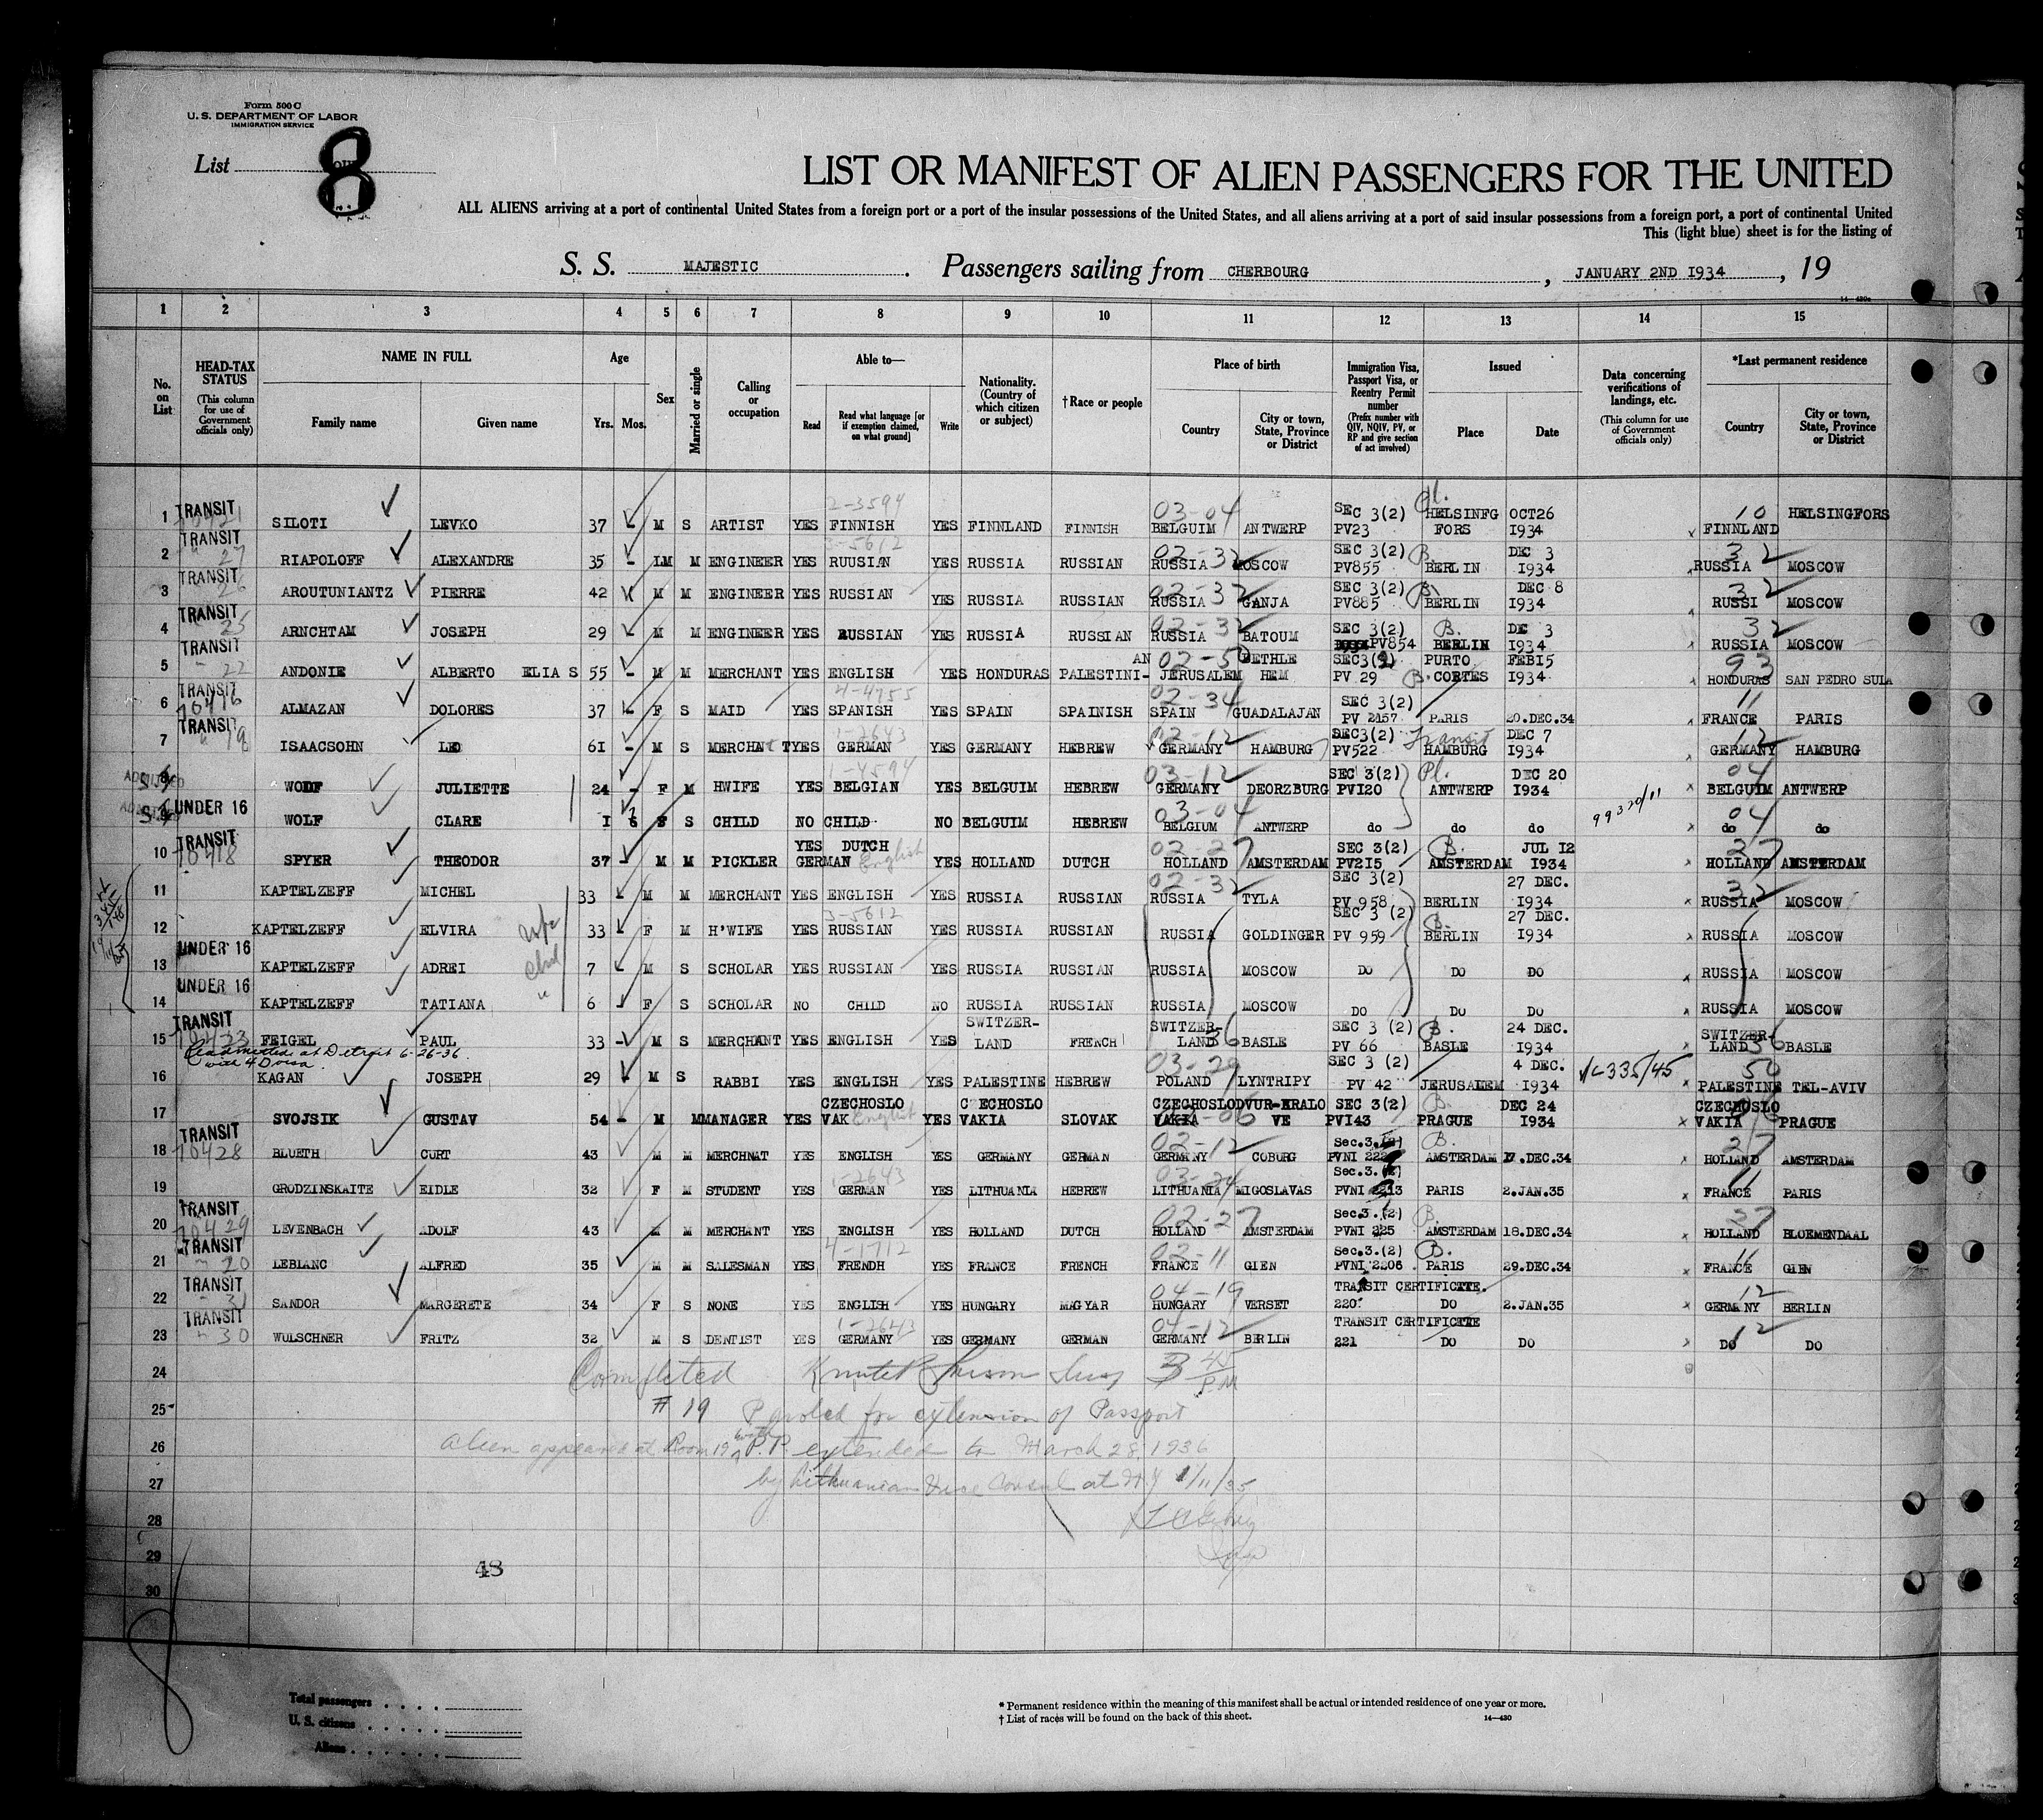 Form 500 C
U. S. DEPARTMENT OF LABOR
IMMIGRATION SERVICE
List 8
LIST OR MANIFEST OF ALIEN PASSENGERS FOR THE UNITED
ALL ALIENS arriving at a port of continental United States from a foreign port or a port of the insular possessions of the United States, and all aliens arriving at a port of said insular possessions from a foreign port, a port of continental United
This (light blue) sheet is for the listing of
S. S. MAJESTIC . Passengers sailing from CHERBOURG , JANUARY 2ND I934 , 19
1 2 3 4 5 6 7 8 9 10 11 12 13 14 15
No. on List
HEAD-TAX STATUS (This column for use of Government officials only)
NAME IN FULL Family name Given name
Age Yrs. Mos.
Sex
Married or single
Calling or occupation
Able to— Read Read what language [or if exemption claimed, on what ground] Write
Nationality. (Country of which citizen or subject)
†Race or people
Place of birth Country City or town, State, Province or District
Immigration Visa, Passport Visa, or Reentry Permit number (Prefix number with QIV, NQIV, PV, or RP and give section of act involved)
Issued Place Date
Data concerning verifications of landings, etc. (This column for use of Government officials only)
*Last permanent residence Country City or town, State, Province or District
1 TRANSIT SILOTI LEVKO 37 - M S ARTIST YES FINNISH 2-3594 YES FINNLAND FINNISH 03-04 BELGUIM ANTWERP SEC 3(2) PV23 HELSINFG FORS OCT26 I934 10 FINNLAND HELSINGFORS
2 TRANSIT 27 RIAPOLOFF ALEXANDRE 35 - M M ENGINEER YES RUUSIAN 3-5612 YES RUSSIA RUSSIAN 02-32 RUSSIA MOSCOW SEC 3(2) PV855 B. BERLIN DEC 3 I934 32 RUSSIA MOSCOW
3 TRANSIT 26 AROUTUNIANTZ PIERRE 42 M M ENGINEER YES RUSSIAN YES RUSSIA RUSSIAN 02-32 RUSSIA GANJA SEC 3(2) PV885 B. BERLIN DEC 8 I934 32 RUSSI MOSCOW
4 TRANSIT 25 ARNCHTAM JOSEPH 29 - M M ENGINEER YES RUSSIAN YES RUSSIA RUSSIAN 02-32 RUSSIA BATOUM SEC 3(2) PV854 B. BERLIN DE 3 I934 32 RUSSIA MOSCOW
5 TRANSIT 22 ANDONIE ALBERTO ELIA S 55 - M M MERCHANT YES ENGLISH YES HONDURAS PALESTINI-AN 02-5 JERUSALEM BETHLE HEM SEC3(2) PV 29 B. PURTO CORTES FEBI5 I934 93 HONDURAS SAN PEDRO SULA
6 TRANSIT 10416 ALMAZAN DOLORES 37 - F S MAID YES SPANISH 4-4755 YES SPAIN SPAINISH 02-34 SPAIN GUADALAJAN SEC 3(2) PV 2157 PARIS 20.DEC.34 11 FRANCE PARIS
7 TRANSIT 19 ISAACSOHN LEO 6I - M S MERCHNT YES GERMAN 1-2643 YES GERMANY HEBREW 02-12 GERMANY HAMBURG SEC3(2) PV522 Transit HAMBURG DEC 7 I934 12 GERMANY HAMBURG
8 ADMITTED WOLF JULIETTE 24 - F M HWIFE YES BELGIAN 1-4594 YES BELGUIM HEBREW 03-12 GERMANY DEORZBURG SEC 3(2) PVI20 Pl. ANTWERP DEC 20 I934 04 BELGUIM ANTWERP
UNDER 16 WOLF CLARE I 6 F S CHILD NO CHILD NO BELGUIM HEBREW 03-04 BELGIUM ANTWERP do do do 99320/11 04 do do
10 TRANSIT 10418 SPYER THEODOR 37 M M PICKLER YES DUTCH GERMAN English YES HOLLAND DUTCH 02-27 HOLLAND AMSTERDAM SEC 3(2) PV2I5 B. AMSTERDAM JUL I2 I934 27 HOLLAND AMSTERDAM
11 KAPTELZEFF MICHEL 33 M M MERCHANT YES ENGLISH YES RUSSIA RUSSIAN 02-32 RUSSIA TYLA SEC 3(2) PV 958 BERLIN 27 DEC. I934 32 RUSSIA MOSCOW
12 KAPTELZEFF ELVIRA wife 33 F M H'WIFE YES RUSSIAN 3-5612 YES RUSSIA RUSSIAN RUSSIA GOLDINGER SEC 3 (2) PV 959 B. BERLIN 27 DEC. I934 RUSSIA MOSCOW
13 UNDER 16 KAPTELZEFF ADREI 7 M S SCHOLAR YES RUSSIAN YES RUSSIA RUSSIAN RUSSIA MOSCOW DO DO DO RUSSIA MOSCOW
14 UNDER 16 KAPTELZEFF TATIANA 6 F S SCHOLAR NO CHILD NO RUSSIA RUSSIAN RUSSIA MOSCOW DO DO DO RUSSIA MOSCOW
15 TRANSIT 10423 FEIGEL PAUL 33 - M S MERCHANT YES ENGLISH YES SWITZER-LAND FRENCH SWITZER-LAND 36 BASLE SEC 3 (2) PV 66 B. BASLE 24 DEC. I934 SWITZER-LAND 36 BASLE
Readmitted at Detroit 6-26-36.
16 KAGAN JOSEPH 29 M S RABBI YES ENGLISH YES PALESTINE HEBREW 03-29 POLAND LYNTRIPY SEC 3 (2) PV 42 JERUSALEM 4 DEC. I934 50 PALESTINE TEL-AVIV
17 SVOJSIK GUSTAV 54 - M M MANAGER YES CZECHOSLO VAK English YES C ECHOSLO VAKIA SLOVAK CZECHOSLO VAKIA 06 DVUR-KRALO VE SEC 3(2) PVI43 B. PRAGUE DEC 24 I934 CZECHOSLO VAKIA PRAGUE
18 TRANSIT 10428 BLUETH CURT 43 M M MERCHNAT YES ENGLISH YES GERMANY GERMAN 02-12 GERMANY COBURG Sec.3.(2) B. AMSTERDAM 17.DEC.34 27 HOLLAND AMSTERDAM
19 GRODZINSKAITE EIDLE 32 F M STUDENT YES GERMAN 1-2643 YES LITHUANIA HEBREW 03-24 LITHUANIA MIGOSLAVAS Sec.3.(2) PVNI 2213 PARIS 2.JAN.35 11 FRANCE PARIS
20 TRANSIT 10429 LEVENBACH ADOLF 43 M M MERCHANT YES ENGLISH YES HOLLAND DUTCH 02-27 HOLLAND AMSTERDAM Sec.3.(2) PVNI 225 B. AMSTERDAM 18.DEC.34 27 HOLLAND BLOEMENDAAL
21 TRANSIT 20 LEBLANC ALFRED 35 M M SALESMAN YES FRENDH 4-1712 YES FRANCE FRENCH 02-11 FRANCE GIEN Sec.3.(2) PVNI 2206 B. PARIS 29.DEC.34 11 FRANCE GIEN
22 TRANSIT 31 SANDOR MARGERETE 34 F S NONE YES ENGLISH YES HUNGARY MAGYAR 04-19 HUNGARY VERSET TRANSIT CERTIFICATE. 220. DO 2.JAN.35 12 GERMANY BERLIN
23 TRANSIT 30 WULSCHNER FRITZ 32 M S DENTIST YES GERMANY 1-2643 YES GERMANY GERMAN 04-12 GERMANY BERLIN TRANSIT CERTIFICATE 221 DO DO 12 DO DO
24 Completed 3 45 PM
25 # 19 Paroled for extension of Passport
26 alien appeared at Room 19 with P.P. extended to March 28, 1936
27 by Lithuanian Vice Consul at N.Y 1/11/35
28
29
48
30
Total passengers . . . .
U. S. citizens . . . . .
Aliens . . . . . .
* Permanent residence within the meaning of this manifest shall be actual or intended residence of one year or more.
† List of races will be found on the back of this sheet. 14—430